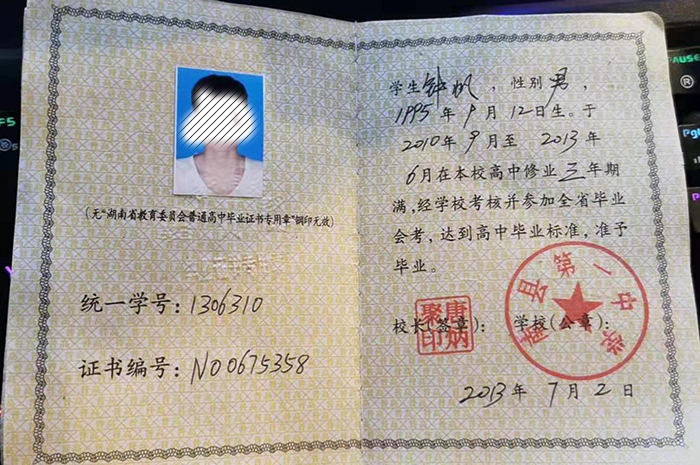 (无“湖南省教育委员会普通高中毕业证书专用章”钢印无效)
统一学号: 1306310
证书编号: N00675358
学生钟帆, 性别男,
1995年9月12日生。于
2010年9月至 2013年
6月在本校高中修业三年期
满,经学校考核并参加全省毕业
会考,达到高中毕业标准,准予
毕业。
校长(签章): 学校(公章):
唐炳聚印
县第一中学
2013年7月2日
F5
PAUSE